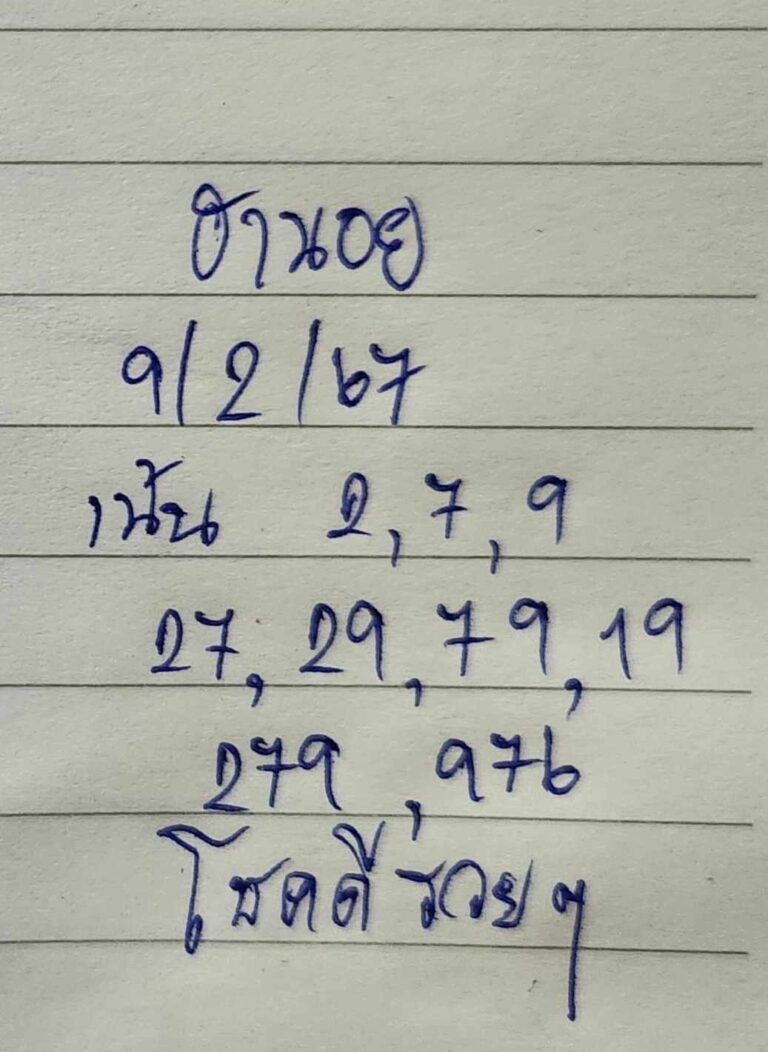 ฮานอย
9/2/67
เน้น 2,7,9
27, 29,79,19
279 ,976
โชคดี รวยๆ